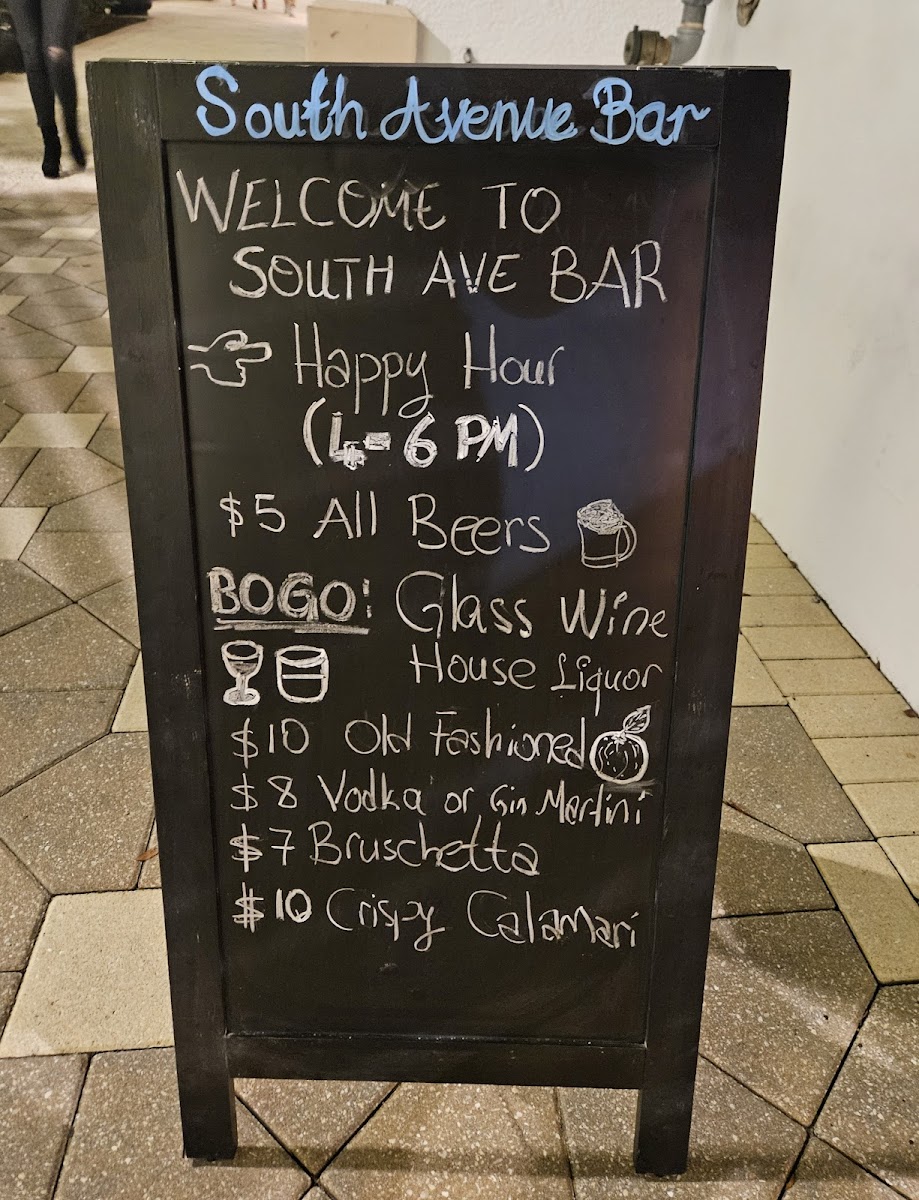 South Avenue Bar
WELCOME TO
SOUTH AVE BAR
Happy Hour
(4-6 PM)
$5 All Beers
BOGO: Glass Wine
House Liquor
$10 Old Fashioned
$8 Vodka or Gin Martini
$7 Bruschetta
$10 Crispy Calamari